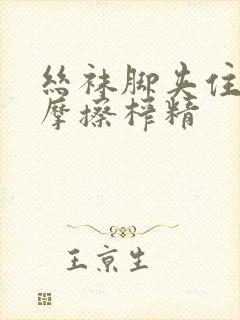 丝袜脚夹住
摩擦榨精
王京生